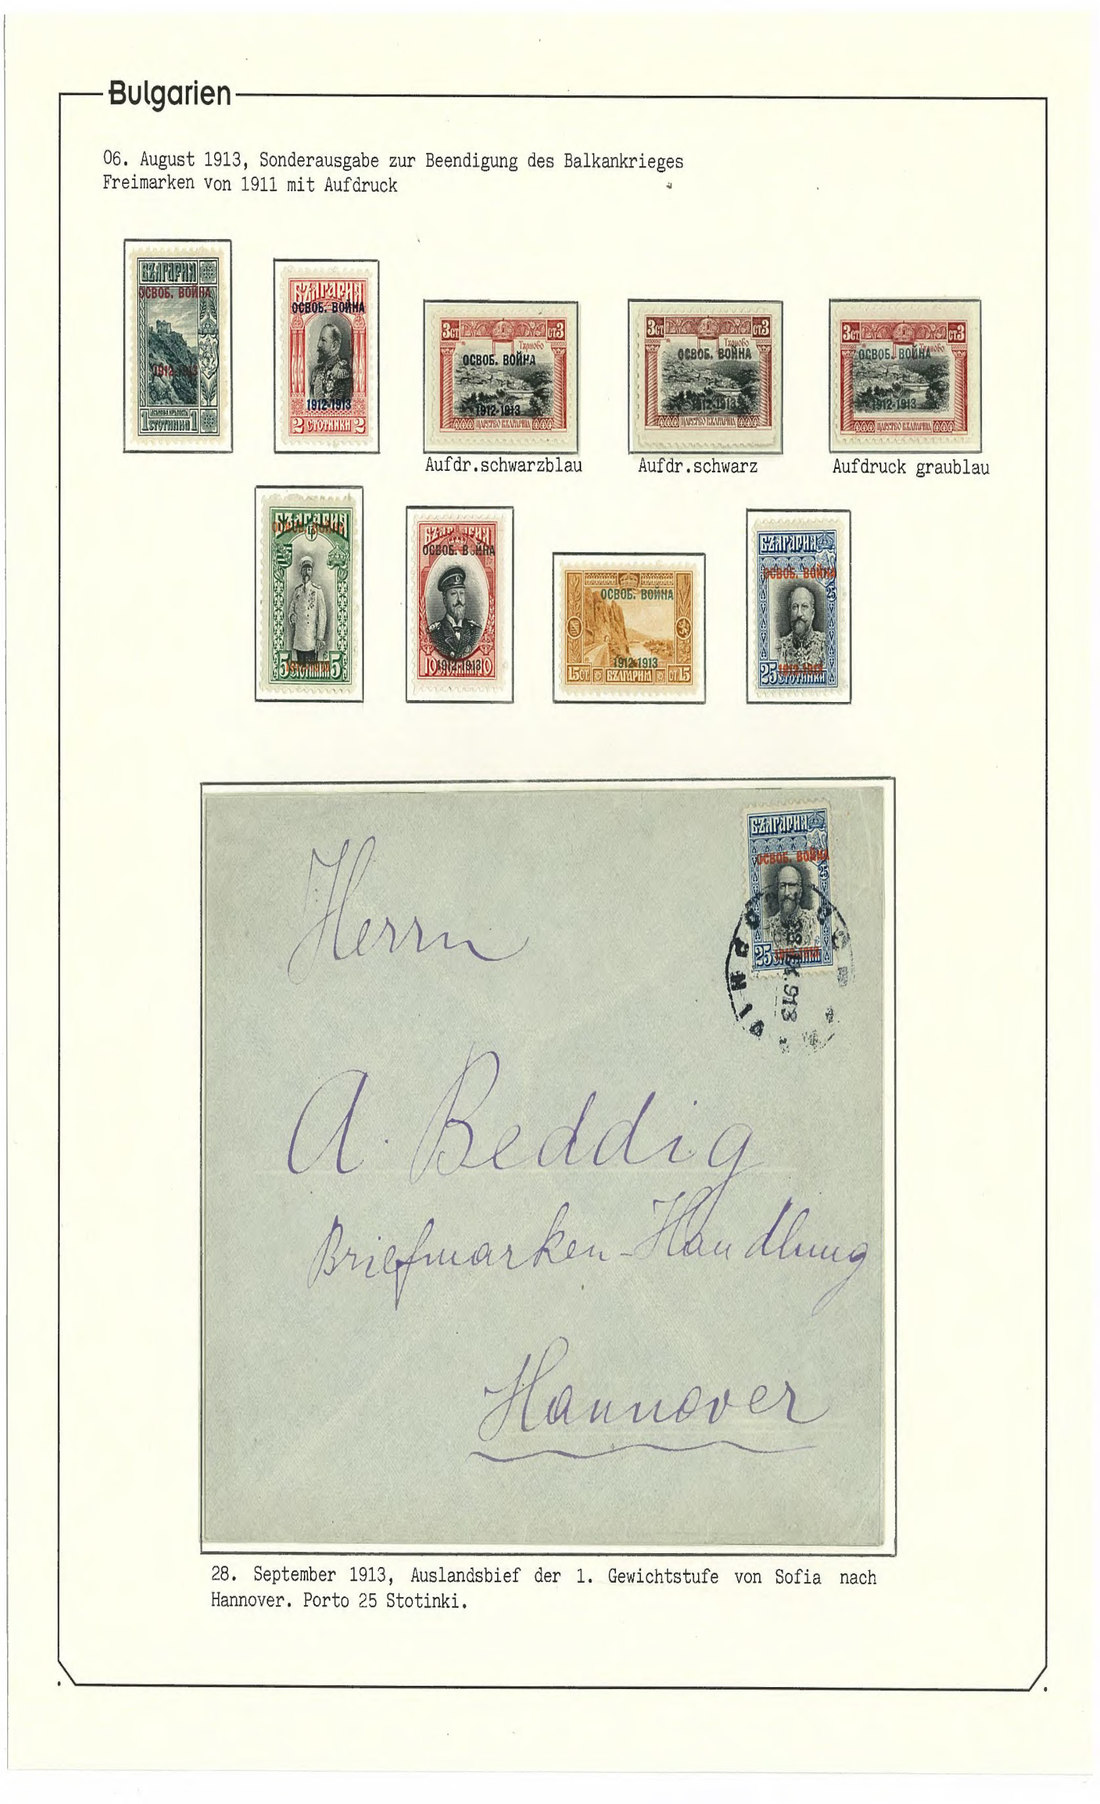 Bulgarien
06. August 1913, Sonderausgabe zur Beendigung des Balkankrieges
Freimarken von 1911 mit Aufdruck
БЪЛГАРИЯ
ОСВОБ. ВОЙНА
1912-1913
1 СТОТИНКА 1
БЪЛГАРИЯ
ОСВОБ. ВОЙНА
1912-1913
2 2
СТОТИНКИ
3СТ СТ3
Търново
ОСВОБ. ВОЙНА
1912-1913
ЦАРСТВО БЪЛГАРИЯ
3СТ СТ3
Търново
ОСВОБ. ВОЙНА
1912-1913
ЦАРСТВО БЪЛГАРИЯ
3СТ СТ3
Търново
ОСВОБ. ВОЙНА
1912-1913
ЦАРСТВО БЪЛГАРИЯ
Aufdr.schwarzblau
Aufdr.schwarz
Aufdruck graublau
БЪЛГАРИЯ
ОСВОБ. ВОЙНА
1912-1913
5 5
СТОТИНКИ
БЪЛГАРИЯ
ОСВОБ. ВОЙНА
1912-1913
10 СТОТИНКИ 10
15 15
ОСВОБ. ВОЙНА
1912-1913
15СТ. БЪЛГАРИЯ СТ.15
БЪЛГАРИЯ
ОСВОБ. ВОЙНА
25
1912-1913
25 СТОТИНКИ
БЪЛГАРИЯ
ОСВОБ. ВОЙНА
25
1912-1913
25 СТОТИНКИ
28.IX.913
Herrn
A. Beddig
Briefmarken-Handlung
Hannover
28. September 1913, Auslandsbief der 1. Gewichtstufe von Sofia nach
Hannover. Porto 25 Stotinki.